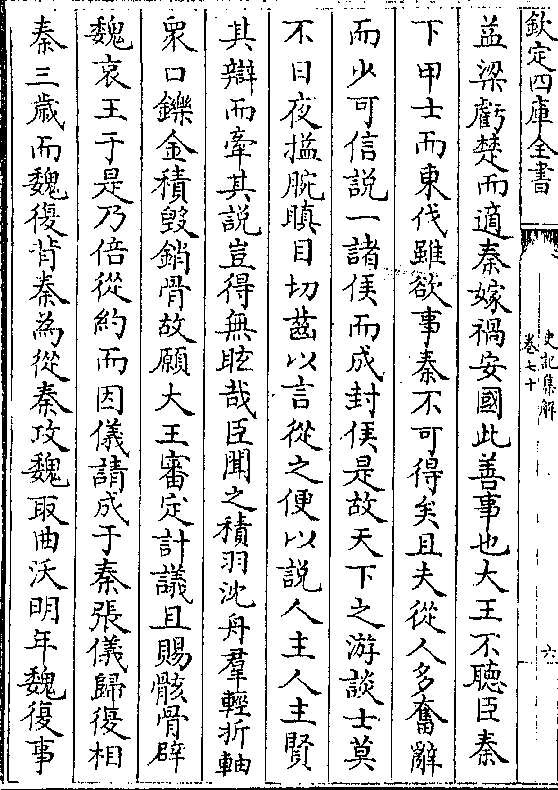 欽定四庫全書
史記集解
卷七十
六
益梁虧楚而適秦嫁禍安國此善事也大王不聽臣秦
下甲士而東伐雖欲事秦不可得矣且夫從人多奮辭
而少可信說一諸侯而成封侯是故天下之游談士莫
不日夜搤腕瞋目切齒以言從之便以說人主人主賢
其辯而牽其說豈得無眩哉臣聞之積羽沈舟羣輕折軸
衆口鑠金積毀銷骨故願大王審定計議且賜骸骨辟
魏哀王于是乃倍從約而因儀請成于秦張儀歸復相
秦三歲而魏復背秦為從秦攻魏取曲沃明年魏復事